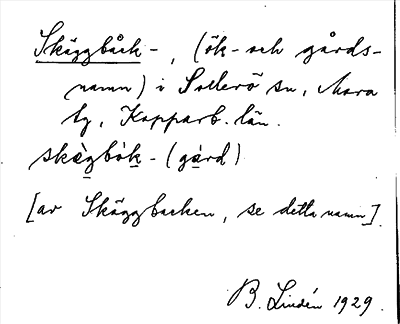 Skäggbåck-, (ök- och gårds-
namn) i Sollerö sn, Mora
tg, Kopparb. län.
skǽgbók- (gård)
[av Skäggbacken, se detta namn].
B. Lindén 1929.